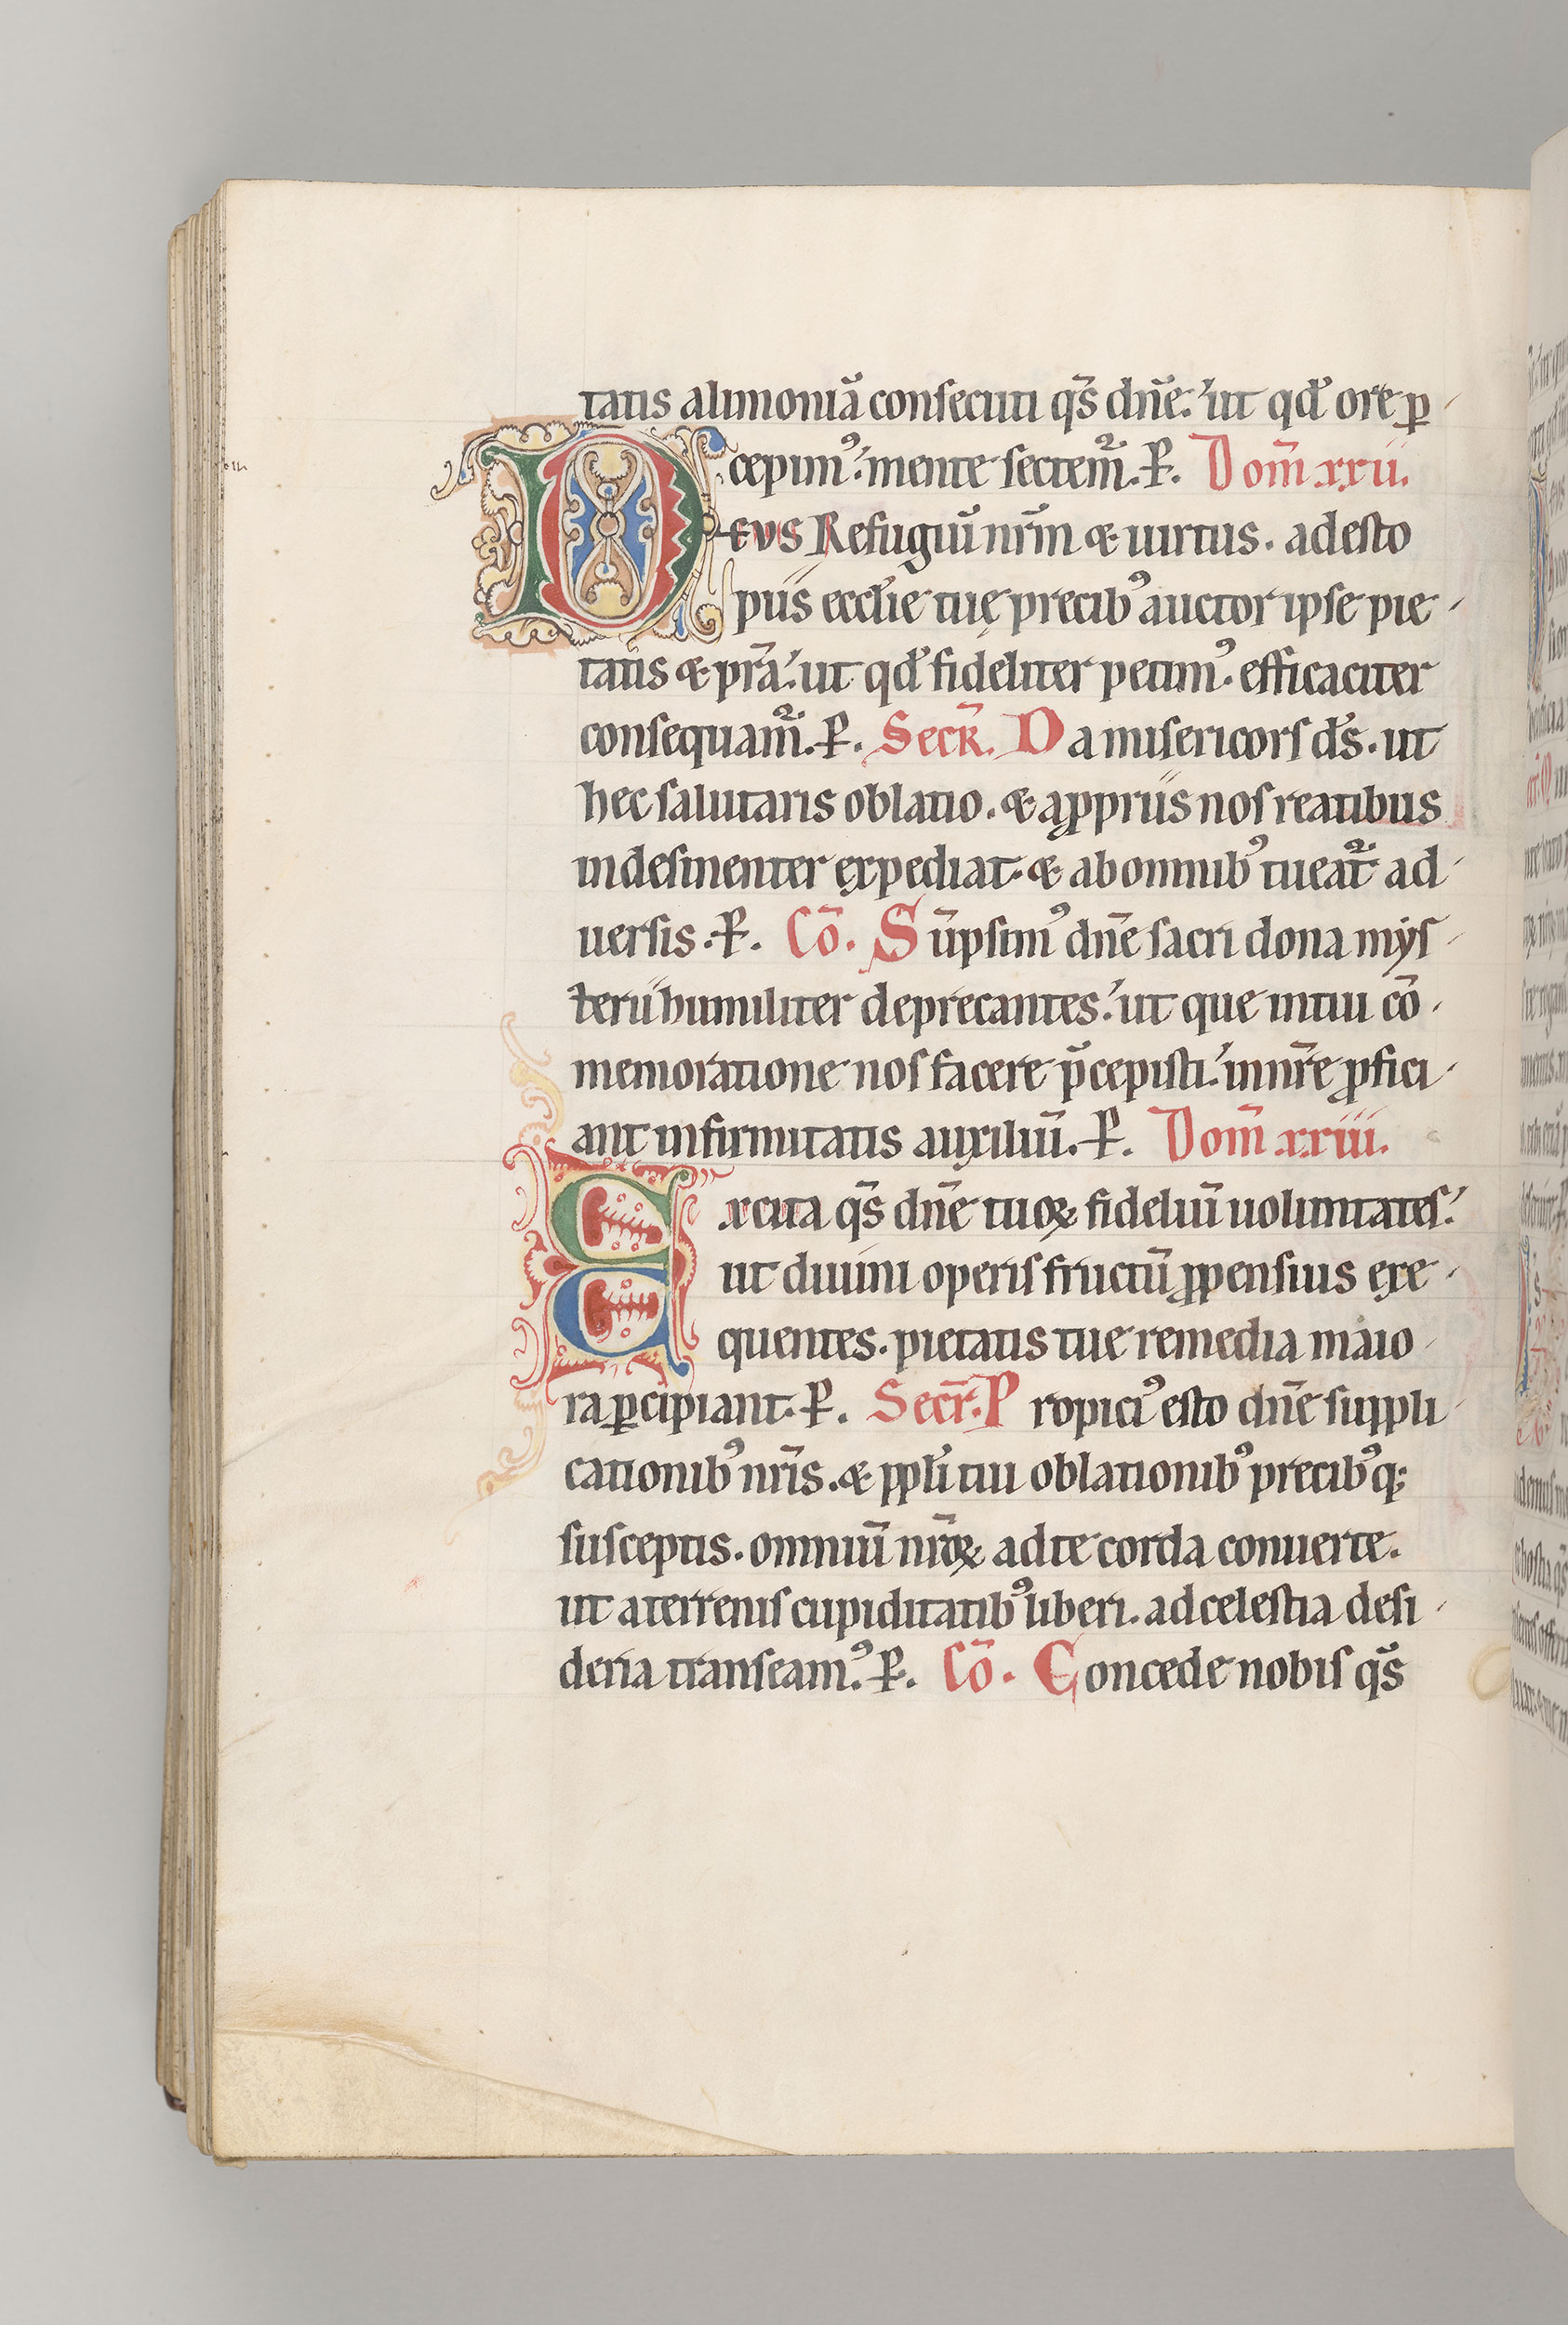 tatis alimoniā consecuti q̄s dn̄e. ut qd̓ ore ꝑ-
cepimꝰ. mente sectem̄. P̵. Dom̄ xxii.
Deus Refugiū nr̄m & uirtus. adesto
piis eccl̓ie tuę precibꝰ auctor ipse pie-
tatis & pr̄a. ut qd̓ fideliter petimꝰ. efficaciter
consequam̄. P̵. Secr̄. Da misericors d̓s. ut
hec salutaris oblatio. & a ꝓpriis nos reatibus
indesinenter expediat. & ab omnibꝰ tueat̄ ad-
uersis. P̵. Cō. Sūpsimꝰ dn̄e sacri dona mẏs-
terii humiliter deprecantes. ut que in tui cō-
memoratione nos facere p̄cepisti. in nr̄e ꝓfici-
ant infirmitatis auxiliū. P̵. Dom̄ xxiii.
Excita q̄s dn̄e tuoꝝ fideliū uoluntates.
ut diuini operis fructū ꝓpensius exe-
quentes. pietatis tue remedia maio-
ra ꝑcipiant. P̵. Secr̄. Propiciꝰ esto dn̄e suppli-
cationibꝰ nr̄is. & ppl̓i tui oblationibꝰ precibꝰq;
susceptis. omniū nr̄oꝝ ad te corda conuerte.
ut a terrenis cupiditatibꝰ liberi. ad celestia desi-
deria transeamꝰ. P̵. Cō. Concede nobis q̄s